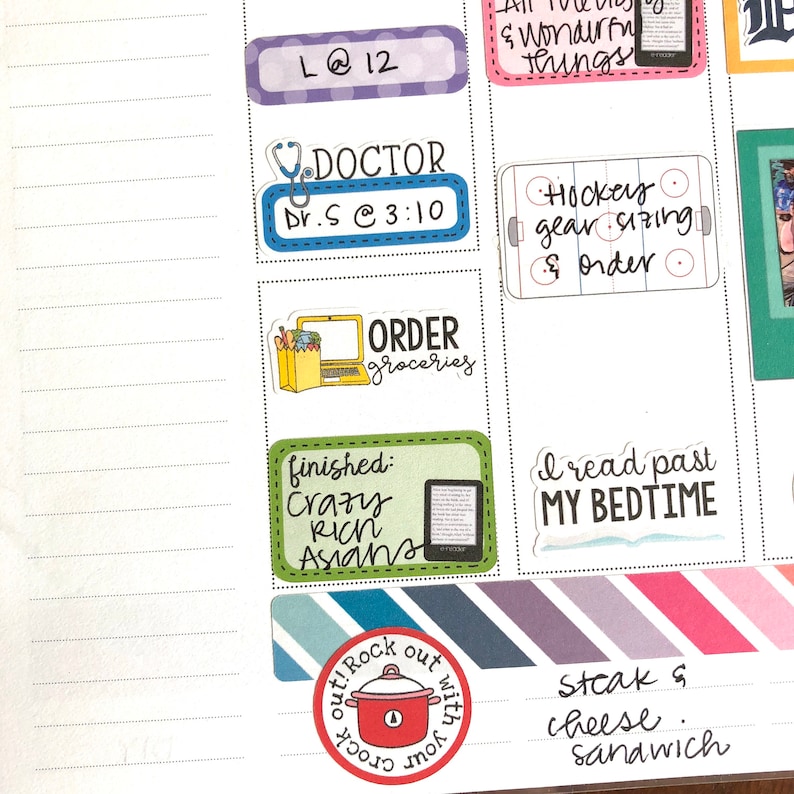 L @ 12
DOCTOR
Dr. S @ 3:10
ORDER
groceries
finished:
Crazy
Rich
Asians
e-reader
& Wonderful
Things
e-reader
Hockey
gear sizing
& order
I read past
MY BEDTIME
Rock out with your crock out!
steak &
cheese.
sandwich